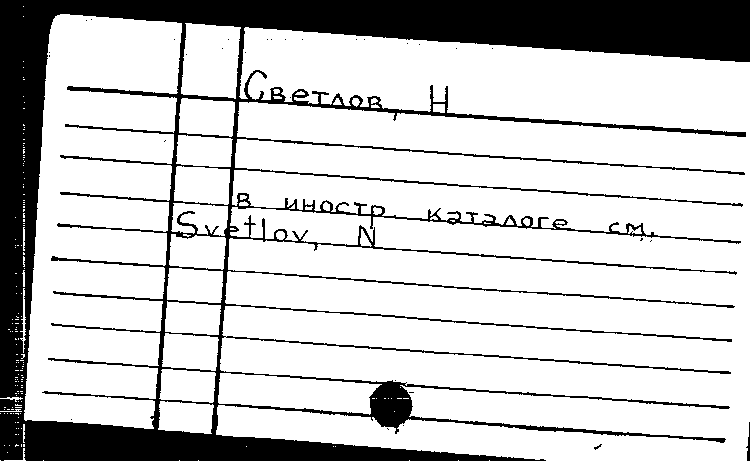 Светлов, Н
в иностр. каталоге см.
Svetlov, N